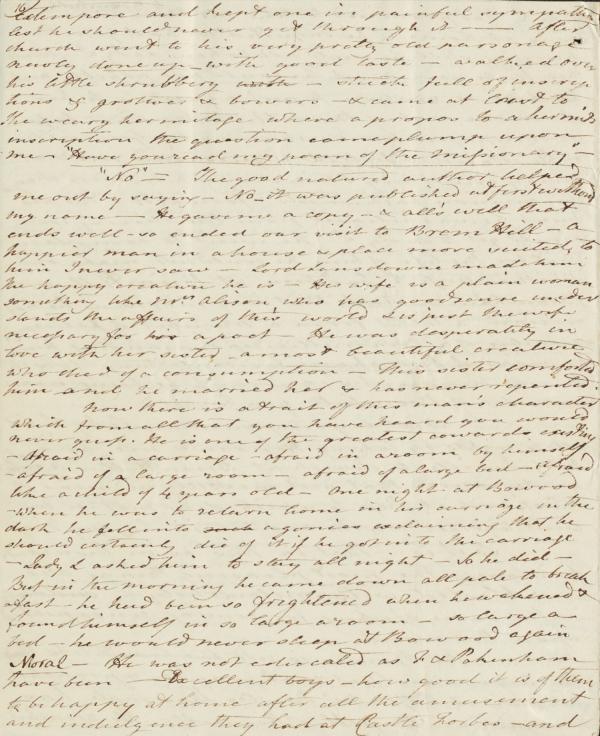 16
Extempore and kept one in painful sympathy
lest he should never get through it — After
church went to his very pretty old parsonage
newly done up with good taste — walked over
his little shrubbery with – stuck full of inscrip
tions & grottoes & bowers – & came at last to
the weary hermitage where a propos to a hermits
inscription the question came plump upon
me – "Have you read my poem of the Missionary" –
"No" – The good natured author helped
me out by saying – No it was published at first without
my name – He gave me a copy – & all's well that
ends well – so ended our visit to Brem Hill – a
happier man in a house & place more suited to
him I never saw – Lord Lansdowne made him
the happy creature he is – His wife is a plain woman
something like Mrs Alison who has good sense under
stands the affairs of this world & is just the wife
necessary for a poet – He was desperately in
love with her sister a most beautiful creature
who died of a consumption – This sister comforted
him and he married her & has never repented.
Now there is a trait of this man's character
which from all that you have heard you would
never guess. He is one of the greatest cowards existing
– afraid in a carriage – afraid in a room by himself
– afraid of a large room – afraid of a large bed – afraid
like a child of 4 years old – One night at Bowood
– when he was to return home in his carriage in the
dark he fell into such agonies exclaiming that he
should certainly die of it if he got into the carriage
– Lady L asked him to stay all night – So he did –
But in the morning he came down all pale to break
fast – he had been so frightened when he wakened &
found himself in so large a room – so large a
bed – he would never sleep at Bowood again
Moral – He was not educated as F & Pakenham
have been — Excellent boys – how good it is of them
to be happy at home after all the amusement
and indulgence they had at Castle Forbes – and